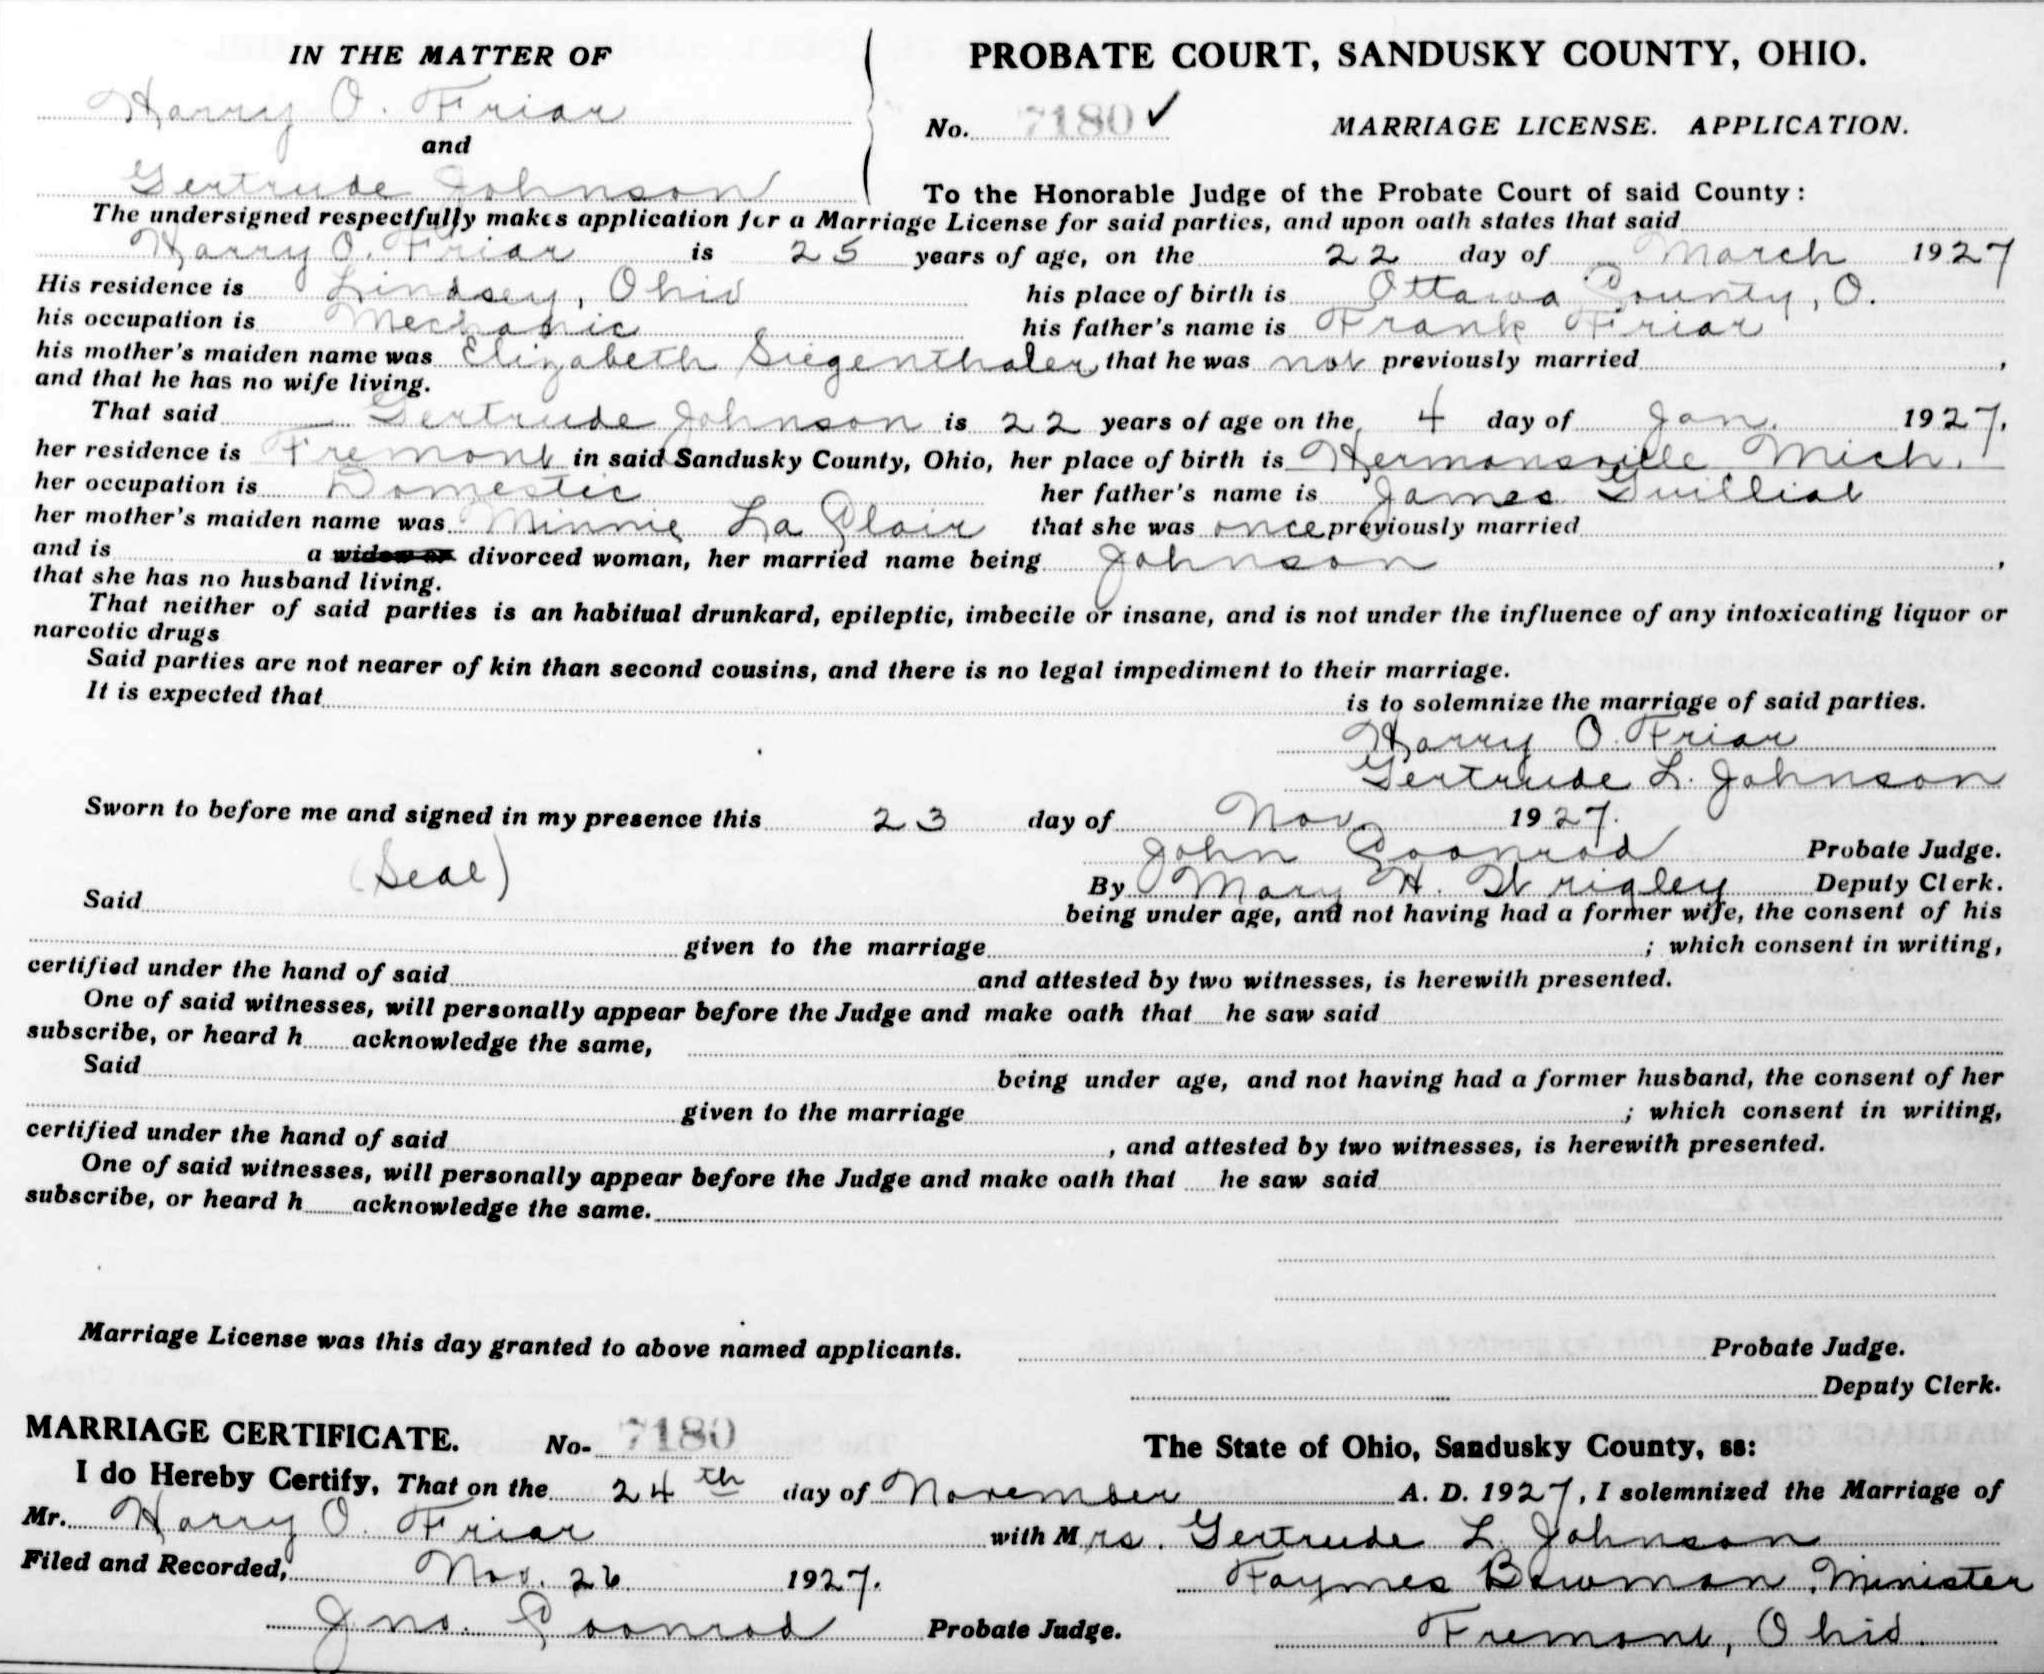 IN THE MATTER OF
Harry O. Friar
and
Gertrude Johnson
PROBATE COURT, SANDUSKY COUNTY, OHIO.
No. 7180 ✓ MARRIAGE LICENSE. APPLICATION.
To the Honorable Judge of the Probate Court of said County:
The undersigned respectfully makes application for a Marriage License for said parties, and upon oath states that said
Harry O. Friar is 25 years of age, on the 22 day of March 1927
His residence is Lindsey, Ohio his place of birth is Ottawa County, O.
his occupation is Mechanic his father's name is Frank Friar
his mother's maiden name was Elizabeth Siegenthaler that he was not previously married ,
and that he has no wife living.
That said Gertrude Johnson is 22 years of age on the 4 day of Jan. 1927.
her residence is Fremont in said Sandusky County, Ohio, her place of birth is Hermansville Mich.
her occupation is Domestic her father's name is James Guilliat
her mother's maiden name was Minnie La Clair that she was once previously married
and is a widow or divorced woman, her married name being Johnson ,
that she has no husband living.
That neither of said parties is an habitual drunkard, epileptic, imbecile or insane, and is not under the influence of any intoxicating liquor or
narcotic drugs
Said parties are not nearer of kin than second cousins, and there is no legal impediment to their marriage.
It is expected that is to solemnize the marriage of said parties.
Harry O. Friar
Gertrude L. Johnson
Sworn to before me and signed in my presence this 23 day of Nov. 1927.
(Seal) John Coonrod Probate Judge.
By Mary H. Wrigley Deputy Clerk.
Said being under age, and not having had a former wife, the consent of his
given to the marriage ; which consent in writing,
certified under the hand of said and attested by two witnesses, is herewith presented.
One of said witnesses, will personally appear before the Judge and make oath that he saw said
subscribe, or heard h acknowledge the same,
Said being under age, and not having had a former husband, the consent of her
given to the marriage ; which consent in writing,
certified under the hand of said , and attested by two witnesses, is herewith presented.
One of said witnesses, will personally appear before the Judge and make oath that he saw said
subscribe, or heard h acknowledge the same.
Marriage License was this day granted to above named applicants. Probate Judge.
Deputy Clerk.
MARRIAGE CERTIFICATE. No. 7180 The State of Ohio, Sandusky County, ss:
I do Hereby Certify, That on the 24th day of November A. D. 1927, I solemnized the Marriage of
Mr. Harry O. Friar with Mrs. Gertrude L. Johnson
Filed and Recorded, Nov. 26 1927. Faymes Bowman, Minister
Jno. Coonrod Probate Judge. Fremont, Ohio.